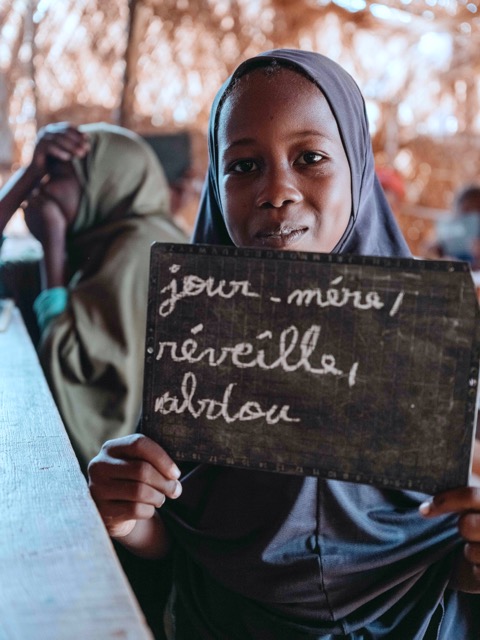 jour - méra,
réveille,
abdou